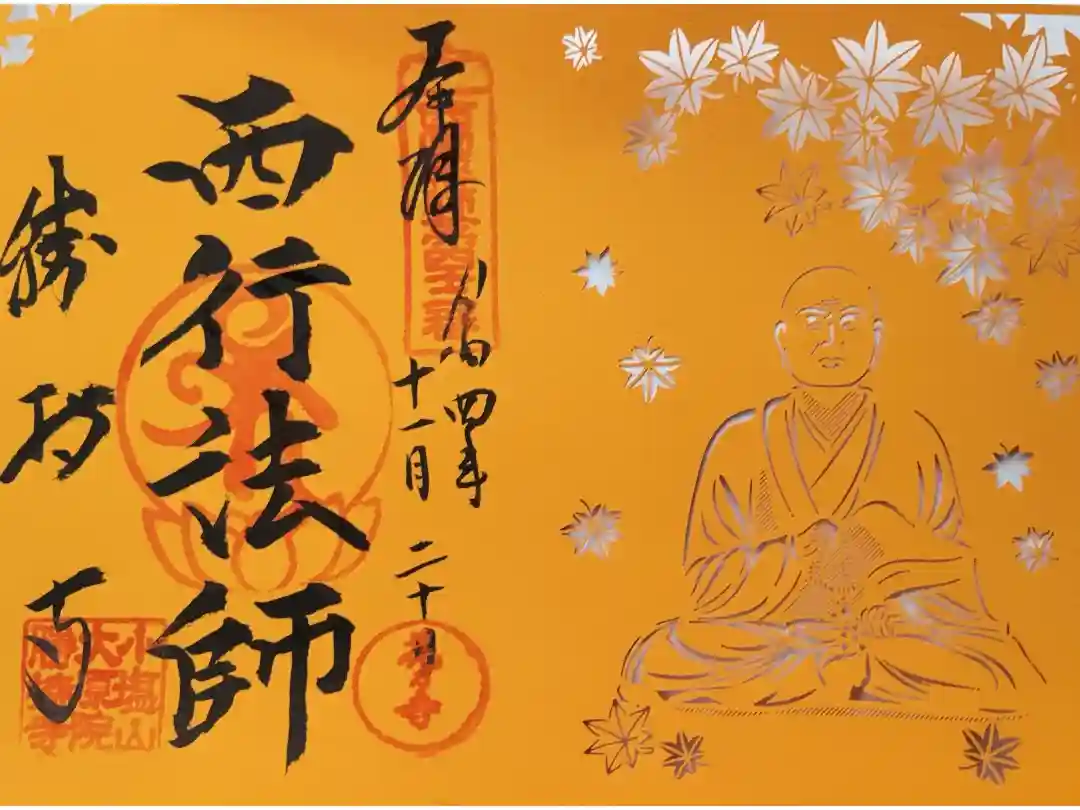 奉拝
令和四年
十一月二十日
西行法師
勝持寺
小塩山
大原院
勝持寺